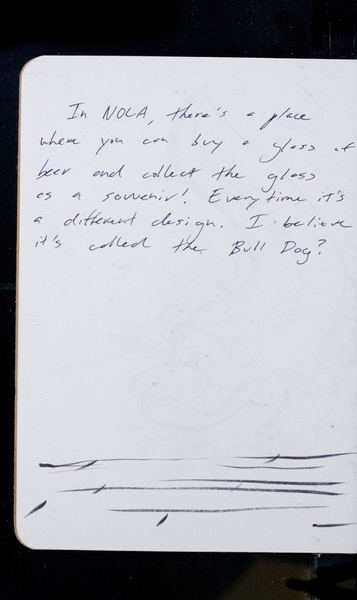 In NOLA, there's a place
where you can buy a glass of
beer and collect the glass
as a souvenir! Everytime it's
a different design. I believe
it's called the Bull Dog?